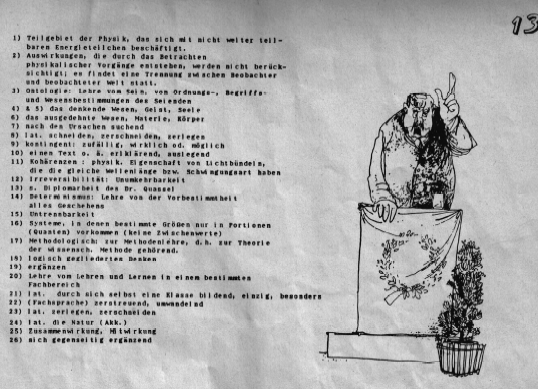 13
1) Teilgebiet der Physik, das sich mit nicht weiter teil-
baren Energieteilchen beschäftigt.
2) Auswirkungen, die durch das Betrachten
physikalischer Vorgänge entstehen, werden nicht berück-
sichtigt; es findet eine Trennung zwischen Beobachter
und beobachteter Welt statt.
3) Ontologie: Lehre vom Sein, von Ordnungs-, Begriffs-
und Wesensbestimmungen des Seienden
4) & 5) das denkende Wesen, Geist, Seele
6) das ausgedehnte Wesen, Materie, Körper
7) nach den Ursachen suchend
8) lat. schneiden, zerschneiden, zerlegen
9) kontingent: zufällig, wirklich od. möglich
10) einen Text o. ä. erklärend, auslegend
11) Kohärenzen : physik. Eigenschaft von Lichtbündeln,
die die gleiche Wellenlänge bzw. Schwingungsart haben
12) Irreversibilität: Unumkehrbarkeit
13) s. Diplomarbeit des Dr. Quassel
14) Determinismus: Lehre von der Vorbestimmtheit
alles Geschehens
15) Untrennbarkeit
16) Systeme, in denen bestimmte Größen nur in Portionen
(Quanten) vorkommen (keine Zwischenwerte)
17) Methodologisch: zur Methodenlehre, d.h. zur Theorie
der wissensch. Methode gehörend.
18) logisch gegliedertes Denken
19) ergänzen
20) Lehre vom Lehren und Lernen in einem bestimmten
Fachbereich
21) lat. durch sich selbst eine Klasse bildend, einzig, besonders
22) (Fachsprache) zerstreuend, umwandelnd
23) lat. zerlegen, zerschneiden
24) lat. die Natur (Akk.)
25) Zusammenwirkung, Mitwirkung
26) sich gegenseitig ergänzend